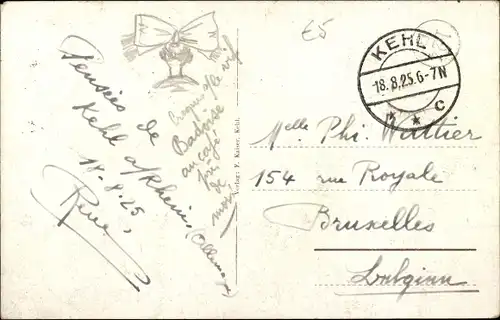 £5
Pensées de
Kehl a/Rhein
(Allemagne)
18-8-25,
René
Croquis le vif
Badoise
au café
près de
moi
Verlag: F. Kaiser, Kehl.
KEHL
18.8.25.6-7N
* * C
Melle Phi. Wattier
154 rue Royale
Bruxelles
Belgium